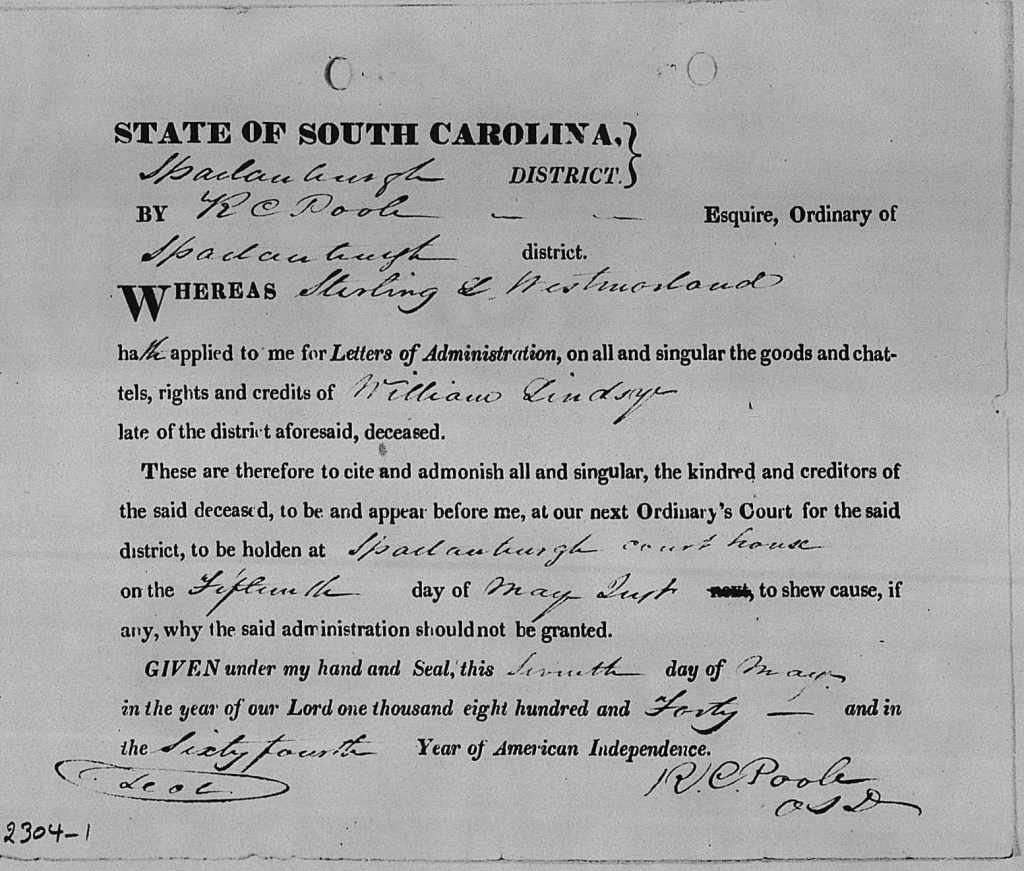 STATE OF SOUTH CAROLINA,
Spartanburgh DISTRICT.
BY R C Poole — — Esquire, Ordinary of
Spartanburgh district.
WHEREAS Sterling L. Westmorland
hath applied to me for Letters of Administration, on all and singular the goods and chat-
tels, rights and credits of William Lindsye
late of the district aforesaid, deceased.
These are therefore to cite and admonish all and singular, the kindred and creditors of
the said deceased, to be and appear before me, at our next Ordinary's Court for the said
district, to be holden at Spartanburgh court house
on the Fifteenth day of May Inst next, to shew cause, if
any, why the said administration should not be granted.
GIVEN under my hand and Seal, this Seventh day of May
in the year of our Lord one thousand eight hundred and Forty — and in
the Sixty fourth Year of American Independence.
Seal R. C. Poole
O S D
2304-1